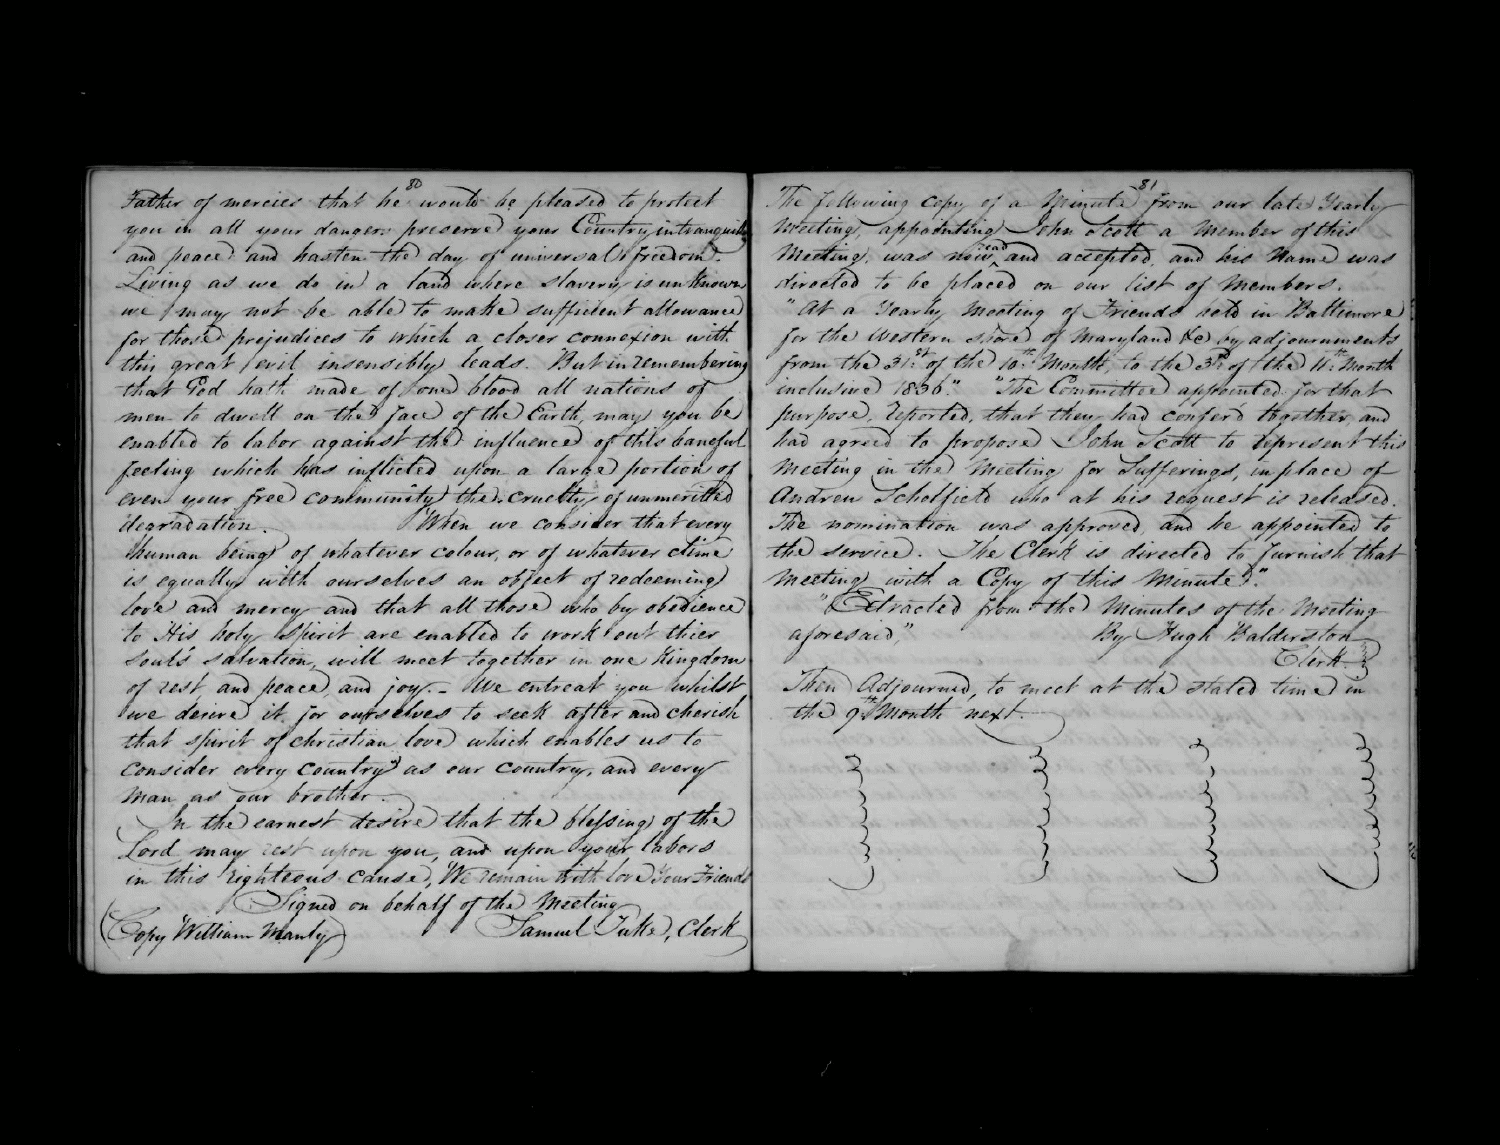 80
Father of mercies that he would be pleased to protect
you in all your dangers preserve your Country in tranquility
and peace and hasten the day of universal freedom.
Living as we do in a land where slavery is unknown
we may not be able to make sufficient allowance
for those prejudices to which a closer connexion with
this great evil insensibly leads. But in remembering
that God hath made of one blood all nations of
men to dwell on the face of the Earth, may you be
enabled to labor against the influence of this baneful
feeling which has inflicted upon a large portion of
even your free community the cruelty of unmerited
degradation. When we consider that every
human being of whatever colour, or of whatever clime
is equally with ourselves an object of redeeming
love and mercy and that all those who by obedience
to His holy spirit are enabled to work out thier
soul's salvation, will meet together in one Kingdom
of rest and peace and joy. - We entreat you whilst
we desire it for ourselves to seek after and cherish
that spirit of christian love which enables us to
consider every country as our country, and every
man as our brother.
In the earnest desire that the blessing of the
Lord may rest upon you, and upon your labors
in this righteous cause, We remain with love Your Friends
Signed on behalf of the Meeting
(Copy William Manly) Samuel Tuke, Clerk
81
The following copy of a Minute from our late Yearly
Meeting, appointing John Scott a Member of this
Meeting, was now read and accepted, and his Name was
directed to be placed on our list of Members.
"At a Yearly Meeting of Friends held in Baltimore
for the Western shore of Maryland &c by adjournments
from the 31st of the 10th Month, to the 3rd of the 11th Month
inclusive 1836". "The Committee appointed for that
purpose, reported, that they had confer'd together, and
had agreed to propose John Scott to represent this
Meeting in the Meeting for Sufferings, in place of
Andrew Scholfield who at his request is released.
The nomination was approved and he appointed to
the service. The Clerk is directed to furnish that
Meeting with a Copy of this Minute."
"Extracted from the Minutes of the Meeting
aforesaid," By Hugh Balderston
Clerk
Then Adjourned, to meet at the stated time in
the 9th Month next.